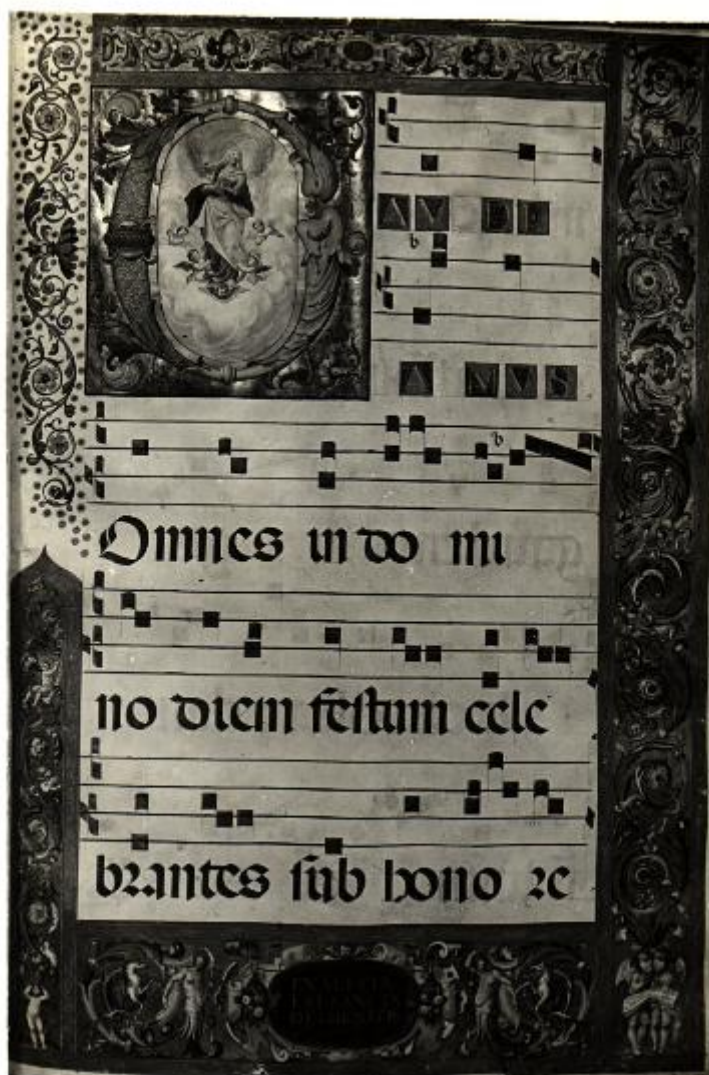 G AV DE
A MVS
Omnes in do mi
no diem festum cele
brantes sub hono re